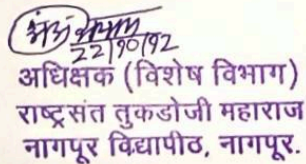 22/10/92
अधिक्षक (विशेष विभाग)
राष्ट्रसंत तुकडोजी महाराज
नागपूर विद्यापीठ, नागपूर.